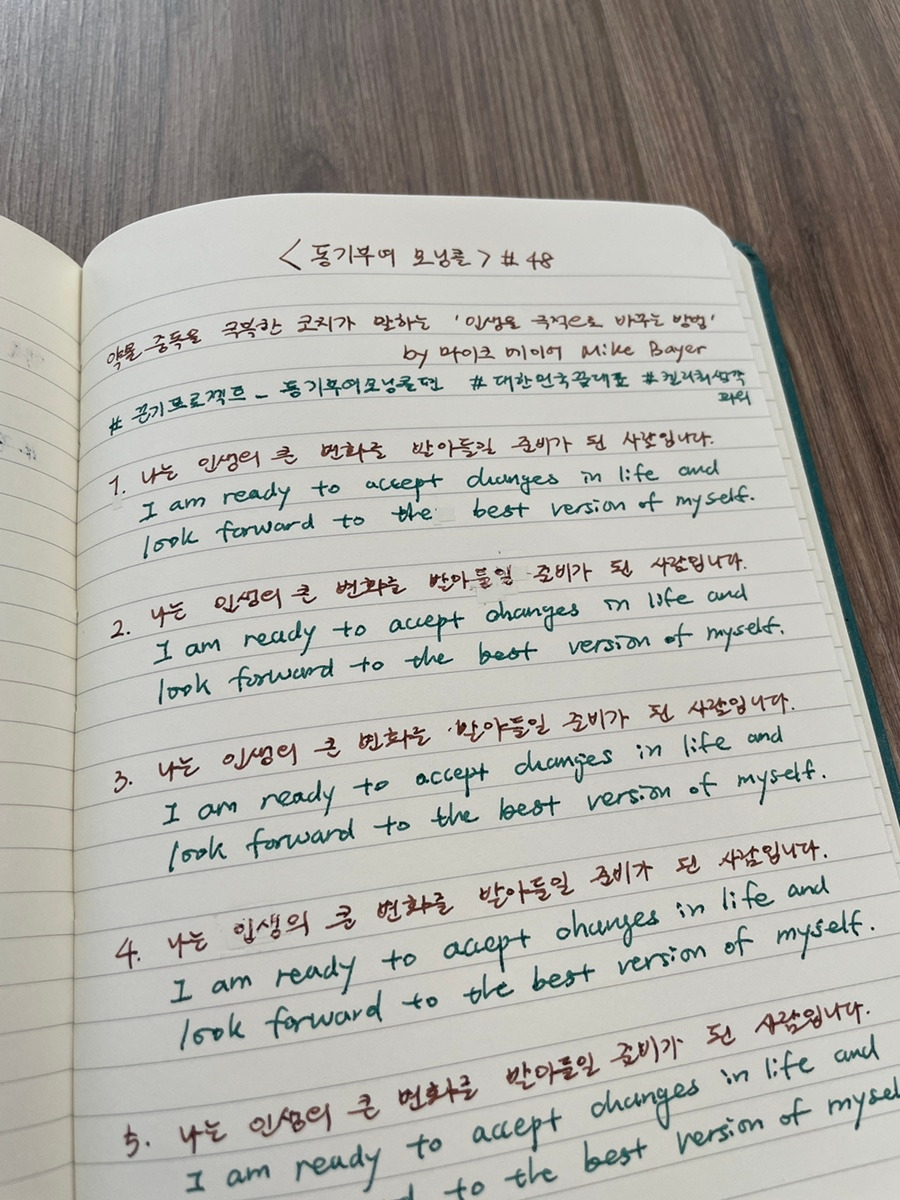 <동기부여 모닝콜> #48
약물 중독을 극복한 코치가 말하는 '인생을 극적으로 바꾸는 방법'
by 마이크 베이어 Mike Bayer
# 끈기프로젝트 - 동기부여모닝콜편 #대한민국꿈대표 #켈리최생각
파워
1. 나는 인생의 큰 변화를 받아들일 준비가 된 사람입니다.
I am ready to accept changes in life and
look forward to the best version of myself.
2. 나는 인생의 큰 변화를 받아들일 준비가 된 사람입니다.
I am ready to accept changes in life and
look forward to the best version of myself.
3. 나는 인생의 큰 변화를 받아들일 준비가 된 사람입니다.
I am ready to accept changes in life and
look forward to the best version of myself.
4. 나는 인생의 큰 변화를 받아들일 준비가 된 사람입니다.
I am ready to accept changes in life and
look forward to the best version of myself.
5. 나는 인생의 큰 변화를 받아들일 준비가 된 사람입니다.
I am ready to accept changes in life and
to the best version of mysel